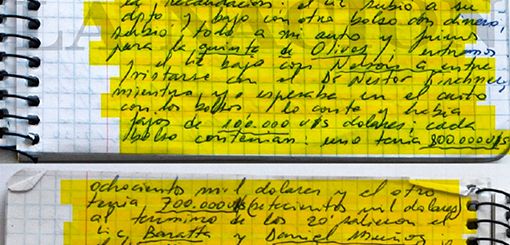 LA NACION
la Recaudación. el lic subió a su
dpto y bajo con otro bolso con dinero,
subio todo a mi auto y fuimos
para la quinta de Olivos, entramos
y el lic bajo con Nelson a entre
vistarse con el Dr Nestor Kirchner,
mientras yo esperaba en el auto
con los bolsos, lo conte y habia
fajos de 100.000 U$S dolares, cada
bolso contenian: uno tenia 800.000 U$S
ochocientos mil dolares y el otro
tenia 700.000 U$S (setecientos mil dolares)
al termino de los 20' salieron el
Lic Baratta y Daniel Muñoz